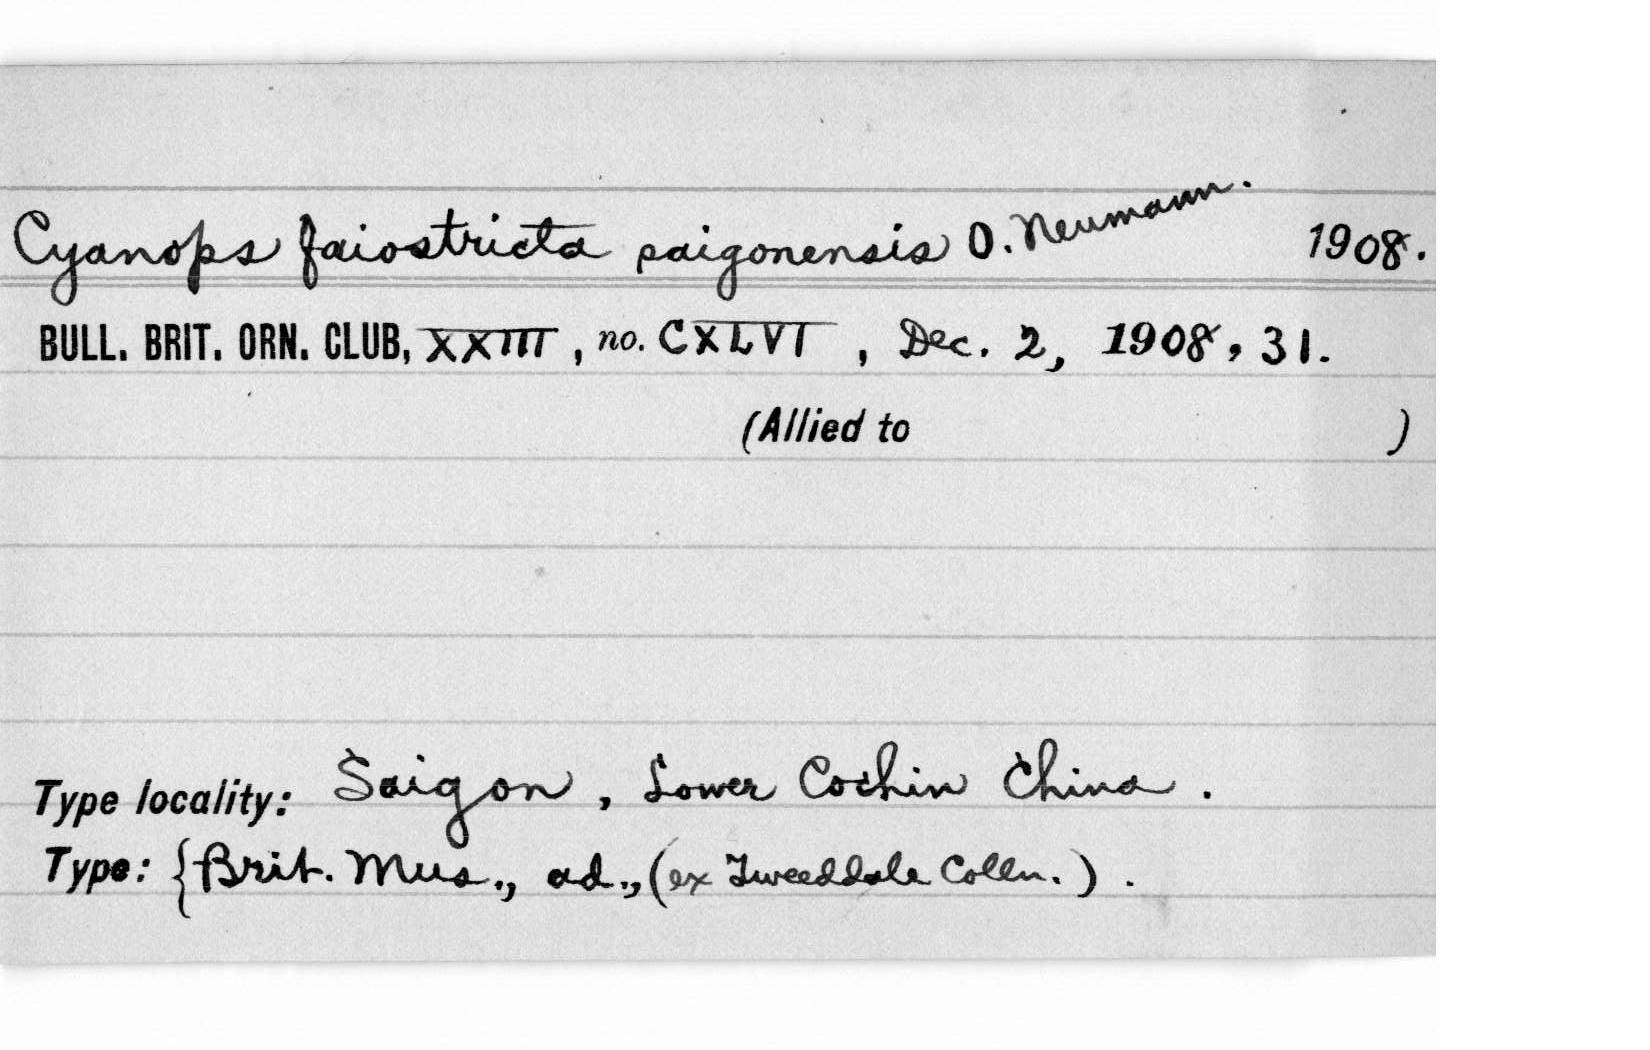 Cyanops faiostricta saigonensis O. Neumann. 1908.
BULL. BRIT. ORN. CLUB, XXIII, no. CXLVI, Dec. 2, 1908, 31.
(Allied to )
Type locality: Saigon, Lower Cochin China.
Type: {Brit. Mus., ad., (ex Tweeddale Colln.).